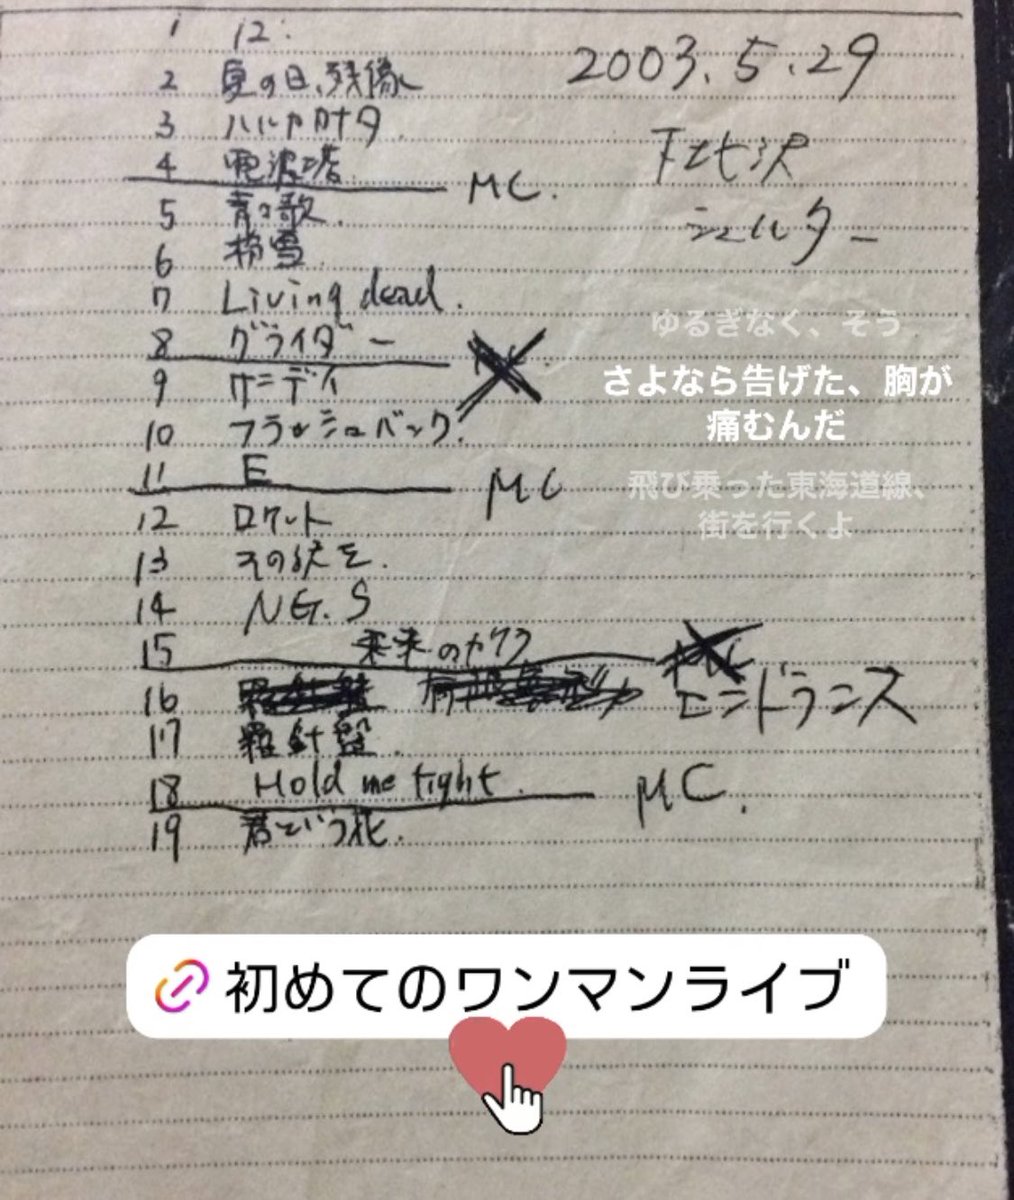 1 12:
2 夏の日、残像
3 ハルカカナタ
4 電波塔
5 青の歌
6 粉雪
7 Living dead.
8 グライダー
9 サニデイ
10 フラッシュバック.
11 E
12 ロケット
13 その訳を.
14 N.G.S
15 未来のカケラ
16
17 羅針盤.
18 Hold me tight.
19 君という花.
2003.5.29
下北沢
シェルター
MC.
MC
エントランス
MC.
ゆるぎなく、そう
さよなら告げた、胸が
痛むんだ
飛び乗った東海道線、
街を行くよ
初めてのワンマンライブ